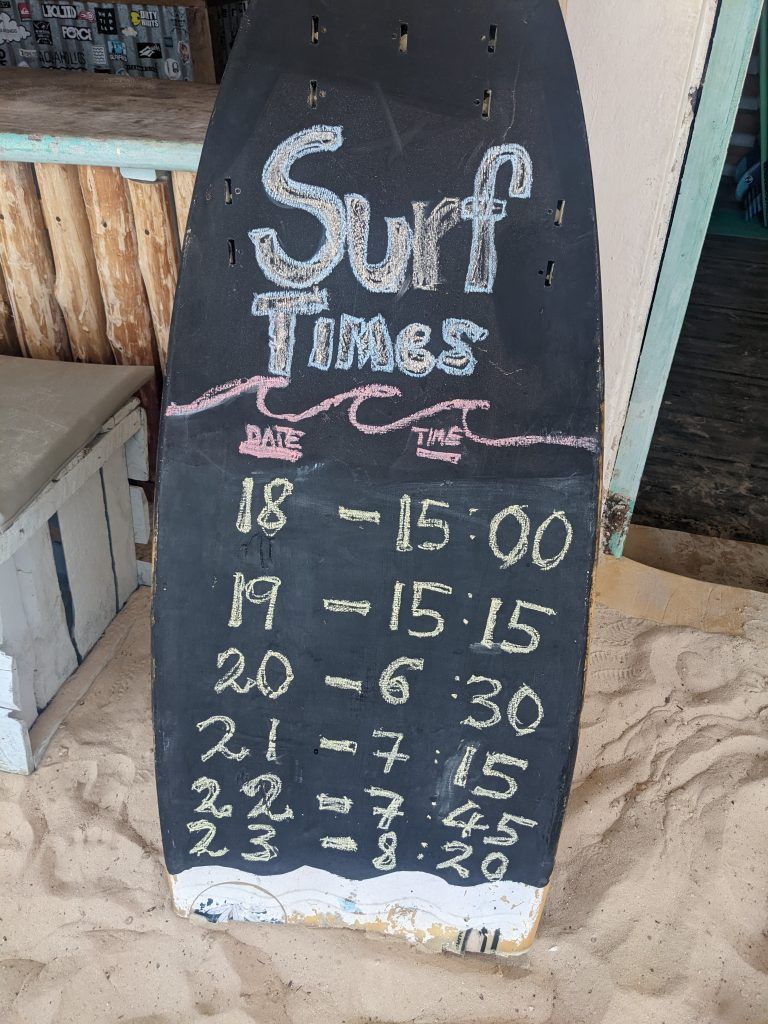 LIQUID
FOX
DIRTY
Surf
Times
DATE TIME
18 - 15:00
19 - 15:15
20 - 6:30
21 - 7:15
22 - 7:45
23 - 8:20